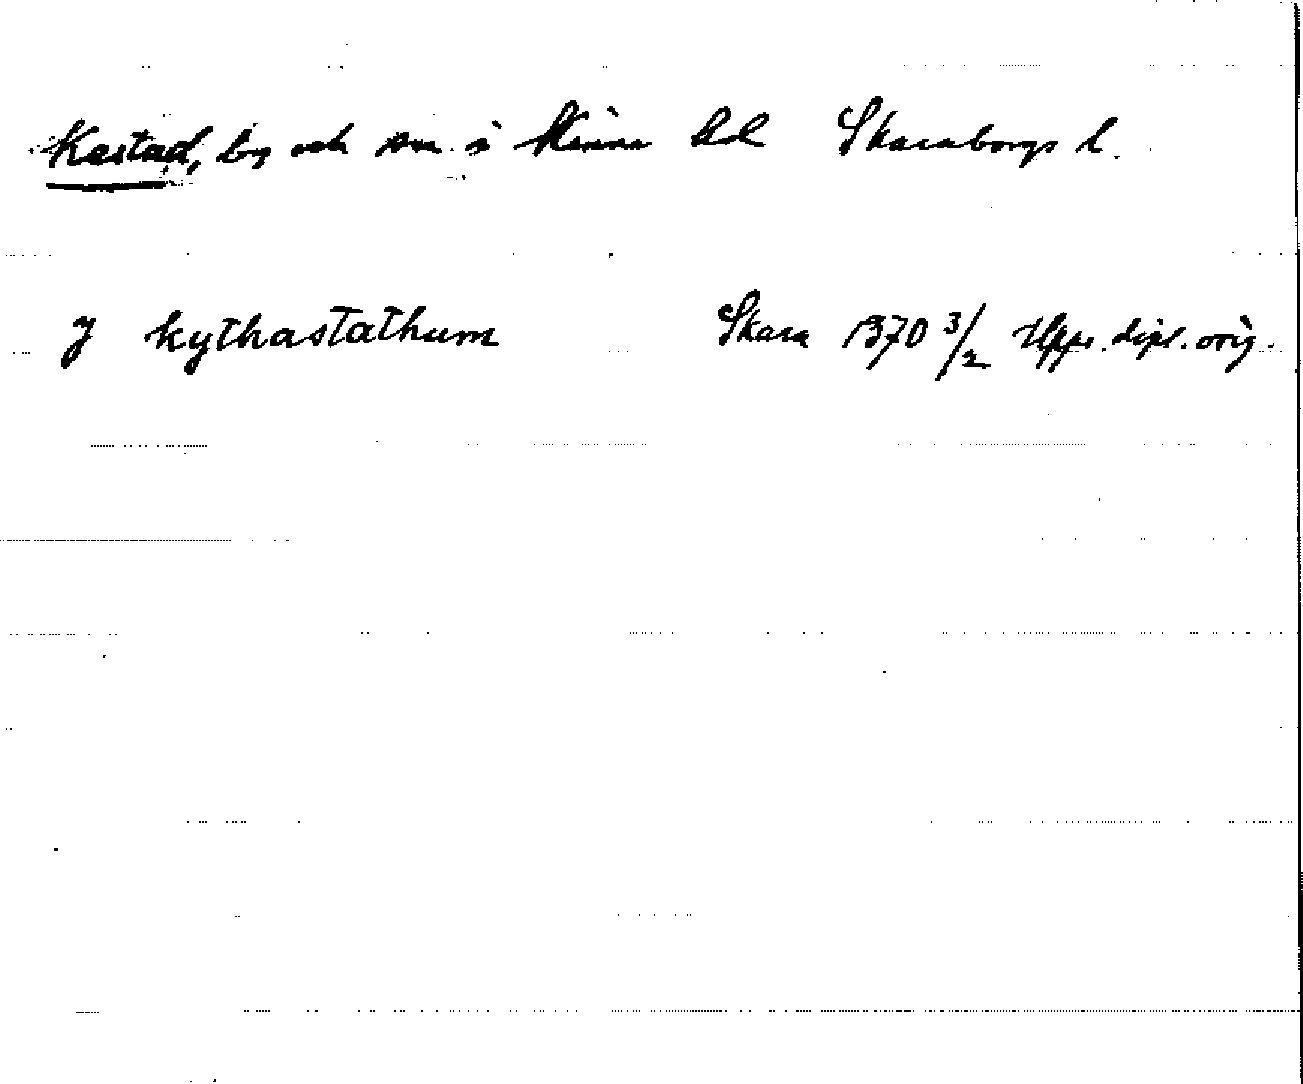 Kestad, by och sn. i Kinne hd Skaraborgs l.
J kythastathum Skara 1370 3/2 Upps. dipl. orig.